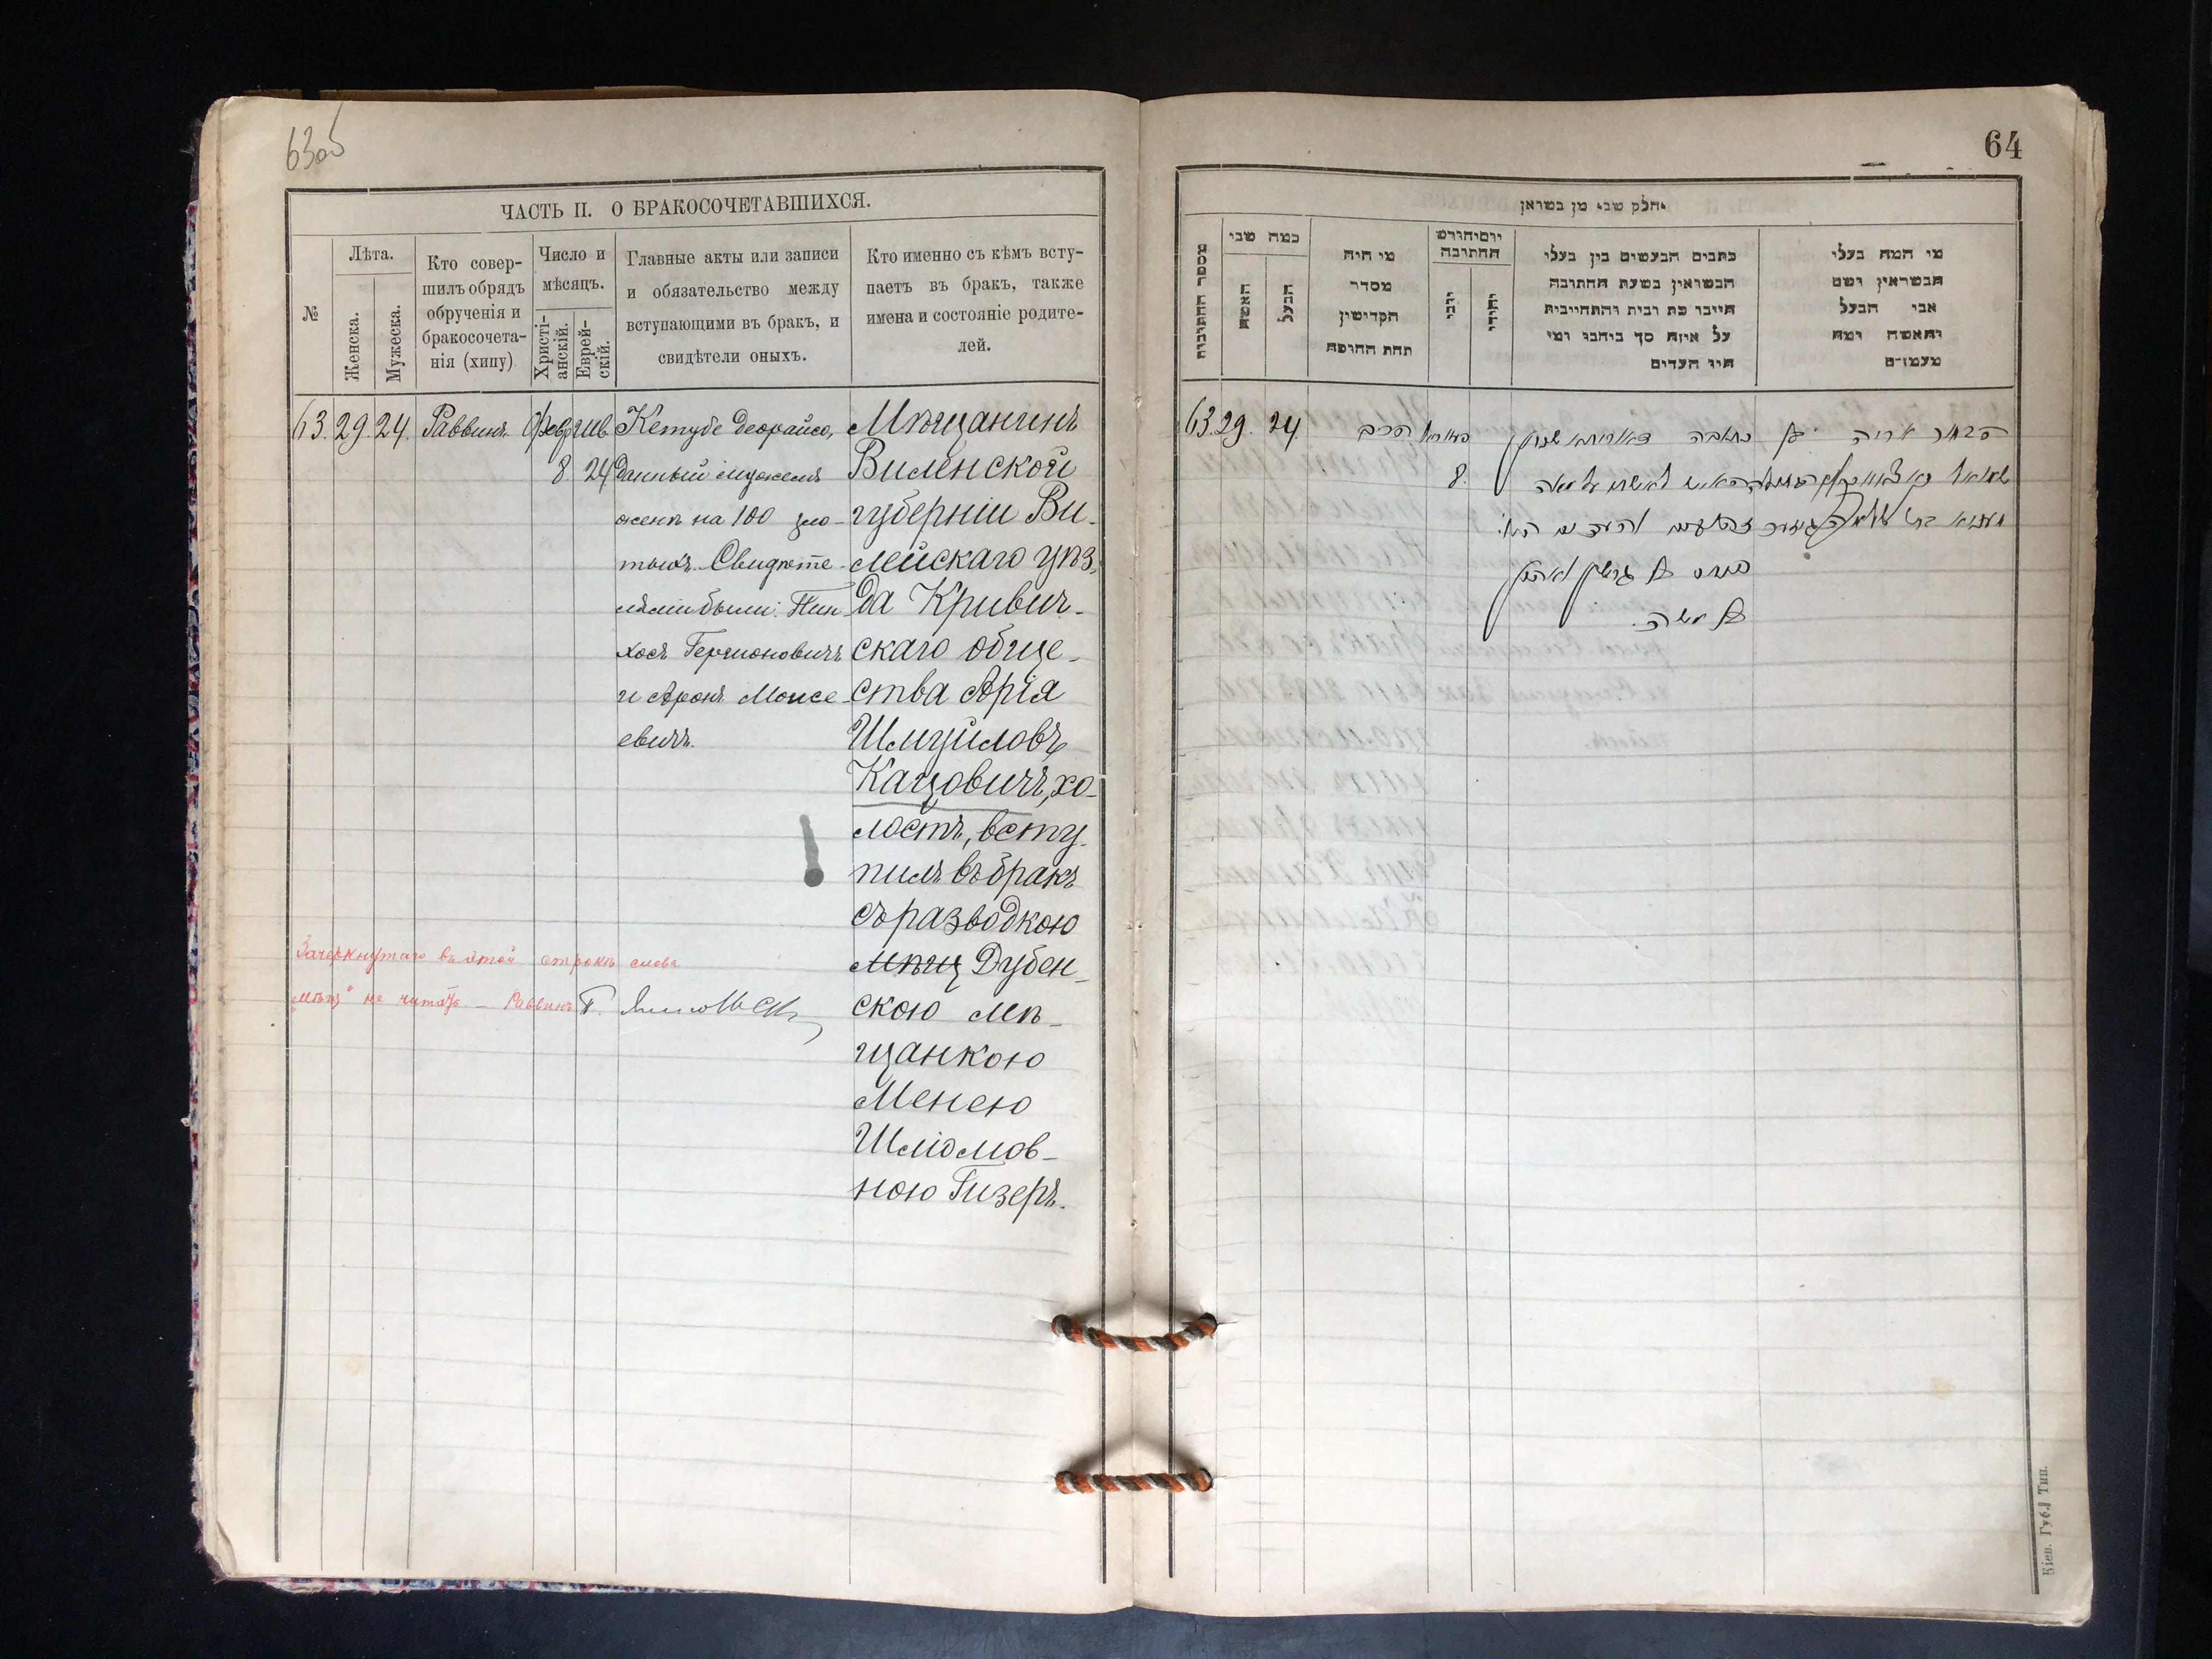 63об
ЧАСТЬ II. О БРАКОСОЧЕТАВШИХСЯ.
№
Лѣта.
Женска.
Мужеска.
Кто совер-
шилъ обрядъ
обрученія и
бракосочета-
нія (хипу)
Число и
мѣсяцъ.
Христі-
анскій.
Еврей-
скій.
Главные акты или записи
и обязательство между
вступающими въ бракъ, и
свидѣтели оныхъ.
Кто именно съ кѣмъ всту-
паетъ въ бракъ, также
имена и состояніе родите-
лей.
63. 29. 24. Раввинъ. Февр. Шв.
8. 24
Кетубе деорайсо,
данный мужемъ
женѣ на 100 зло-
тыхъ. Свидѣте-
лями были: Пин-
хосъ Гершоновичъ
и Аронъ Моисе-
евичъ.
Мѣщанинъ
Виленской
губерніи Ви-
лейскаго уѣз-
да Кривич-
скаго обще-
ства Арія
Шмуйловъ
Кацовичъ, хо-
лостъ, всту-
пилъ въ бракъ
съ разводкою
мѣщ Дубен-
скою мѣ-
щанкою
Менею
Шліомов-
ною Гизеръ.
Зачеркнутаго въ этой строкѣ слова
„мѣщ" не читать. — Раввинъ
64
חלק שני מן בשואן
מספר החתונות
כמה שני
האשה
הבעל
מי היה
מסדר
הקדישין
תחת החופה
יום וחודש
החתונה
נוצרי
יהודי
כתבים הנעשים בין בעלי
הנשואין בשעת החתונה
היינו כת רבית והתחייבות
על איזה סך ביחבו ומי
היו העדים
מי המה בעלי
הנשואין ושם
אבי הבעל
והאשה ומה
מעמדם
63. 29. 24. הרב
8.
הבחור אריה
כתובה דאורייתא
Кіев. Губ. Тип.